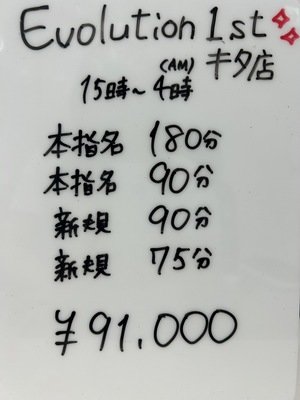 Evolution 1st
キタ店
(AM)
15時～4時
本指名 180分
本指名 90分
新規 90分
新規 75分
¥91,000